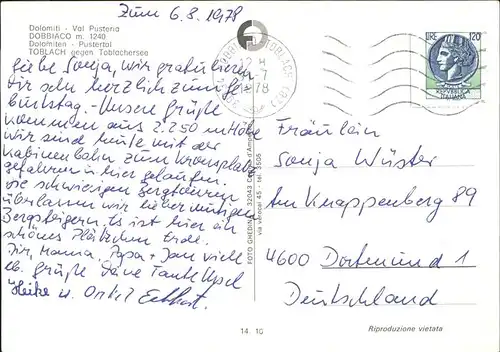 Zum 6.8.1978
Dolomiti - Val Pusteria
DOBBIACO m. 1240
Dolomiten - Pustertal
TOBLACH gegen Toblachersee
Liebe Sonja, wir gratulieren
Dir sehr herzlich zum Ge-
burtstag. Unsere Grüße
kommen aus 2.250 m Höhe
Wir sind heute mit der
Kabinenbahn zum Kronplatz
gefahren u. hier gelaufen.
Die schwierigen Bergtouren
überlassen wir lieber mutigen
Bergsteigern. Es ist hier ein
schönes Plätzchen Erde.
Dir, Mama, Papa + Jan viele
lb. Grüße Deine Tante
Heike u. Onkel Eckhart.
FOTO GHEDINA - 32043 Cortina d'Ampezzo
via 45 - tel. 3508
TOBLACH
78
LIRE 120
REPVBBLICA
ITALIANA
Fräulein
Sonja Wüster
Am Knappenberg 89
4600 Dortmund 1
Deutschland
14 10
Riproduzione vietata